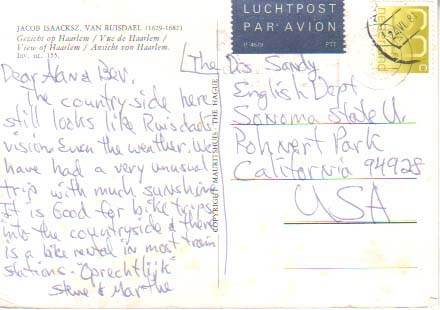 JACOB ISAACKSZ. VAN RUISDAEL (1629-1682)
Gezicht op Haarlem / Vue de Haarlem /
View of Haarlem / Ansicht von Haarlem.
Inv. nr. 155.
LUCHTPOST
PAR AVION
P 4670
PTT
Dear A and Bev.
The countryside here
still looks like Ruisdael's
vision. Even the weather. We
have had a very unusual
trip with much sunshine
It is Good for bike trips
into the countryside & there
is a bike rental in most train
stations. "Oprechtlijk"
Steve & Marthe
COPYRIGHT MAURITSHUIS - THE HAGUE
The Dis Sandy
English Dept
Sonoma State U.
Rohnert Park
California 94928
USA